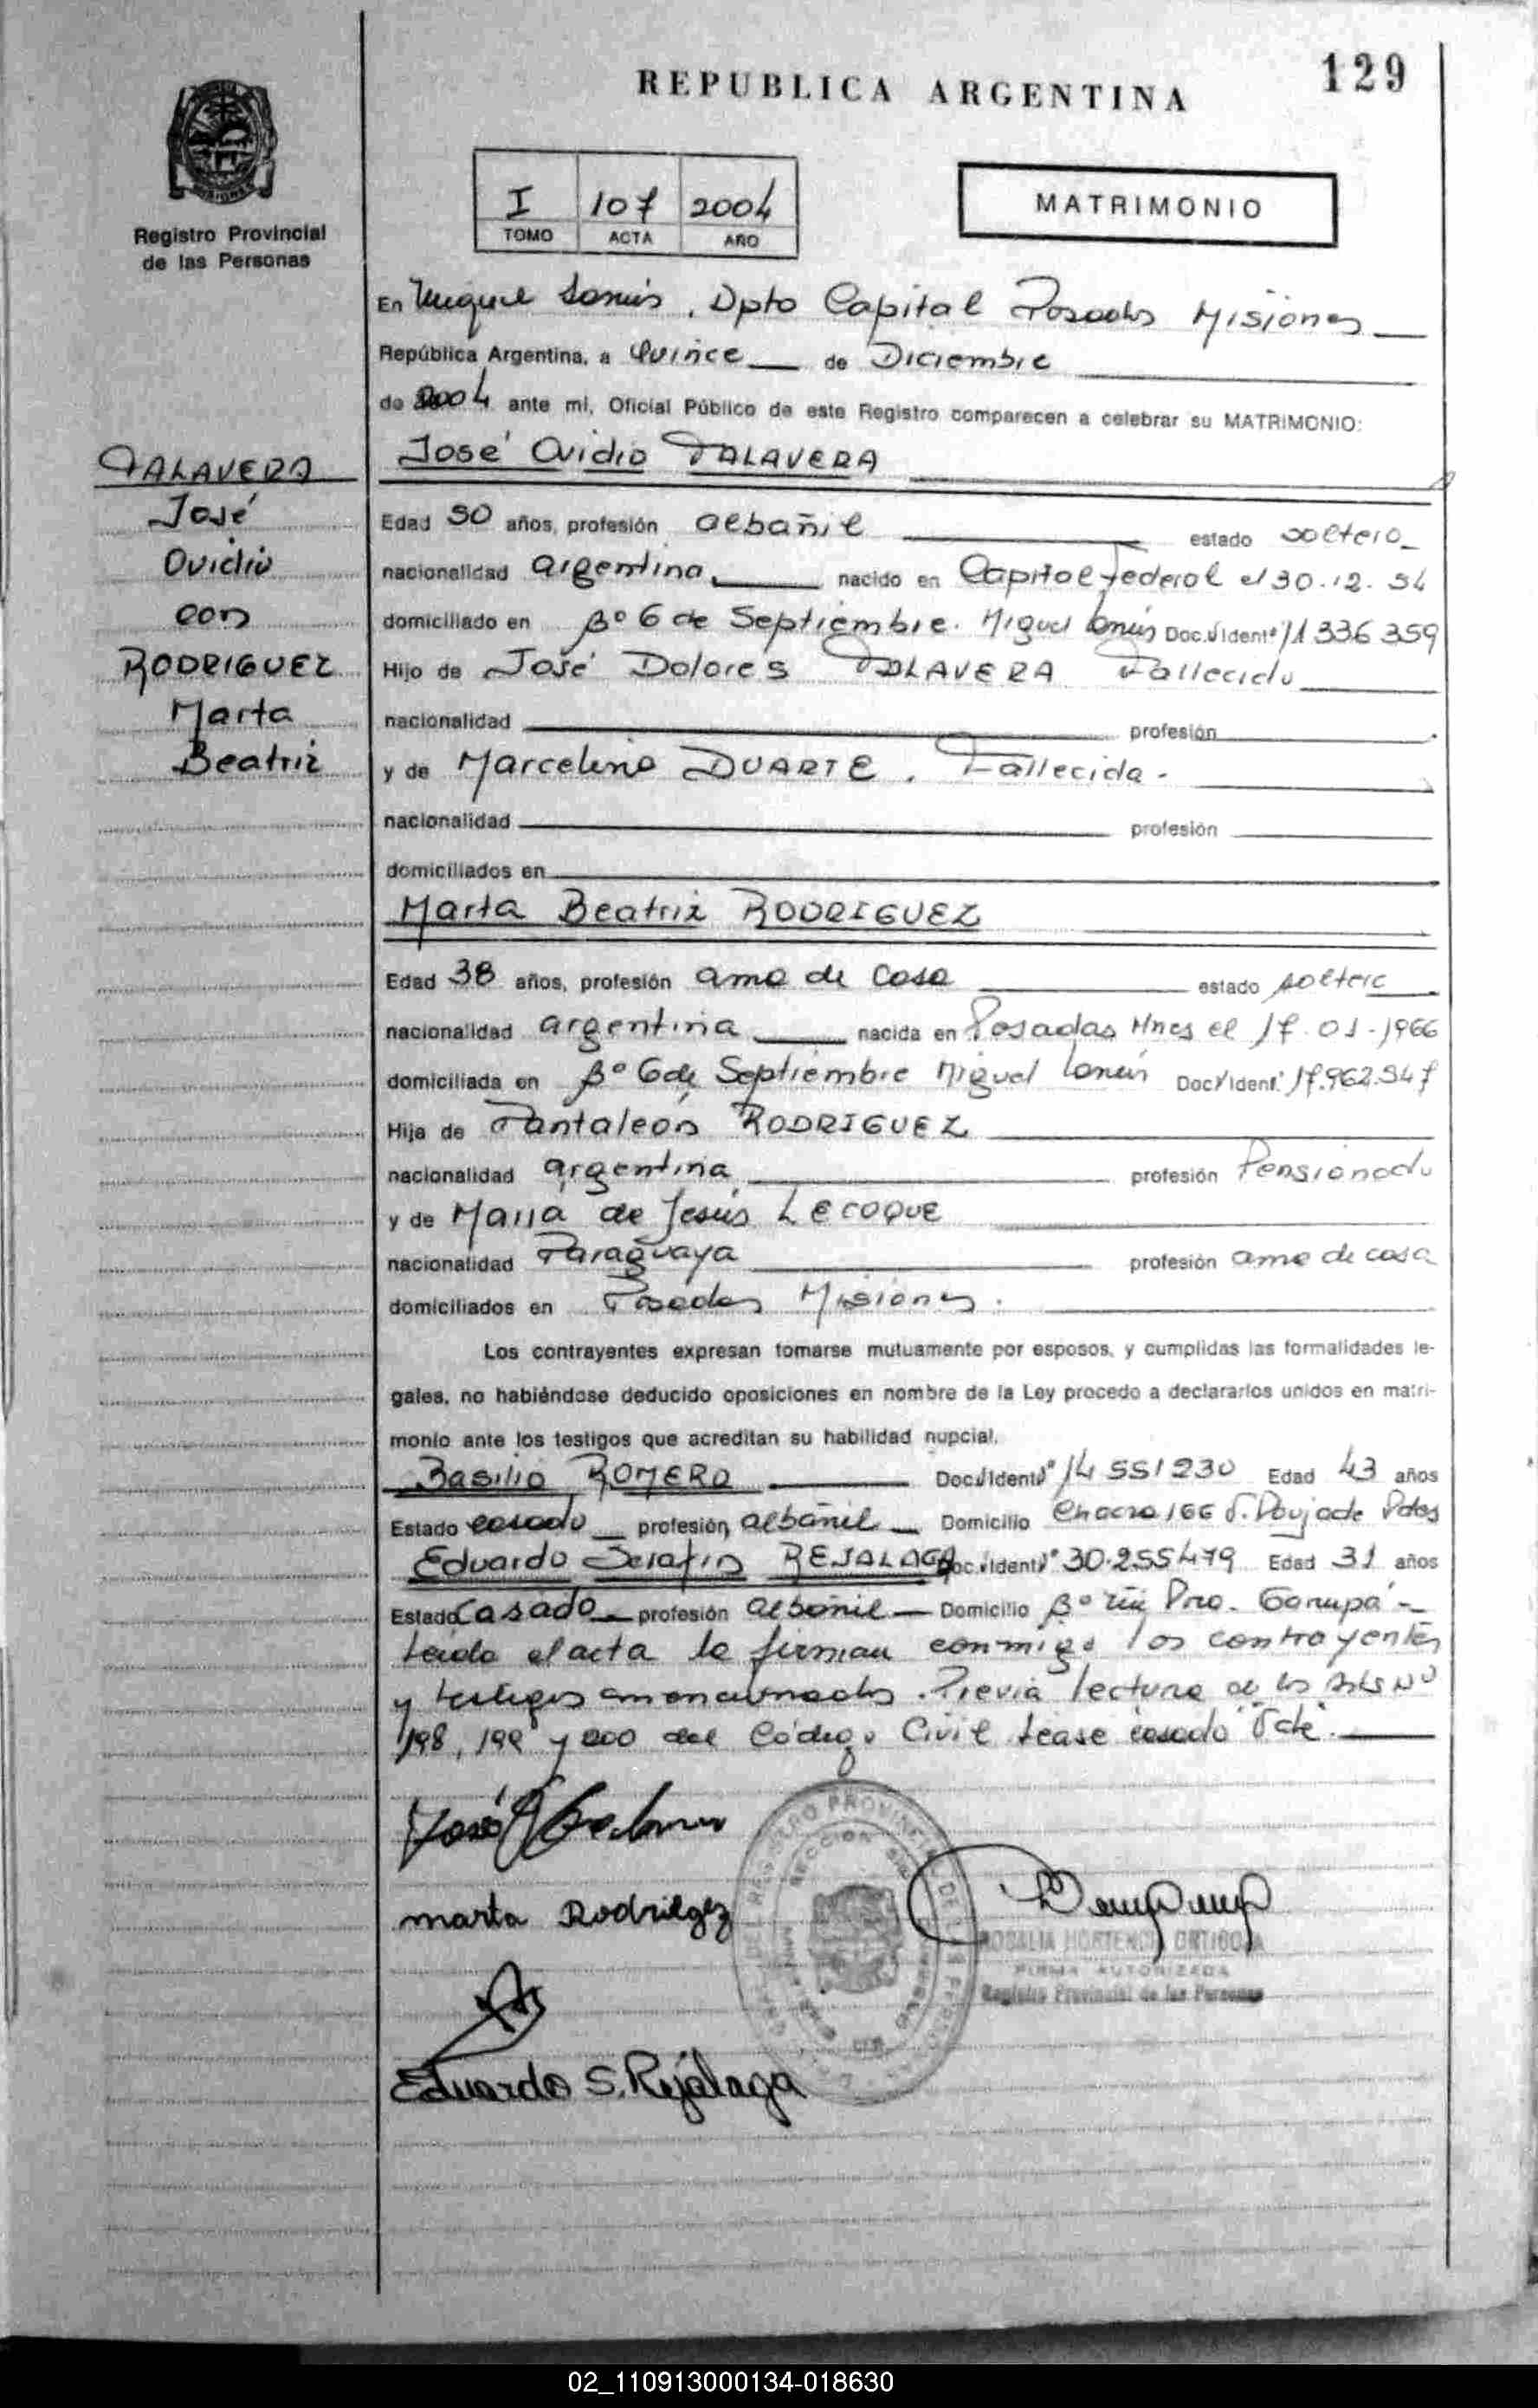 129
REPUBLICA ARGENTINA
I 107 2004
TOMO ACTA AÑO
MATRIMONIO
Registro Provincial
de las Personas
TALAVERA
José
Ovidio
con
RODRIGUEZ
Marta
Beatriz
En Miguel Lanús, Dpto Capital Posadas Misiones
República Argentina, a Quince de Diciembre
de 2004 ante mi, Oficial Público de este Registro comparecen a celebrar su MATRIMONIO:
José Ovidio TALAVERA
Edad 50 años, profesión albañil estado soltero
nacionalidad argentina nacido en Capital Federal el 30.12.54
domiciliado en Bº 6 de Septiembre. Miguel Lanús Doc. Ident. 11336359
Hijo de José Dolores TALAVERA Fallecido
nacionalidad profesión
y de Marcelina DUARTE. Fallecida.
nacionalidad profesión
domiciliados en
Marta Beatriz RODRIGUEZ
Edad 38 años, profesión ama de casa estado soltera
nacionalidad argentina nacida en Posadas Mnes el 17.01-1966
domiciliada en Bº 6 de Septiembre Miguel Lanús Doc. Ident. 17.962.547
Hija de Pantaleón RODRIGUEZ
nacionalidad argentina profesión Pensionado
y de María de Jesús LECOQUE
nacionalidad Paraguaya profesión ama de casa
domiciliados en Posadas Misiones.
Los contrayentes expresan tomarse mutuamente por esposos, y cumplidas las formalidades le-
gales, no habiéndose deducido oposiciones en nombre de la Ley procedo a declararlos unidos en matri-
monio ante los testigos que acreditan su habilidad nupcial.
Basilio ROMERO Doc. Ident. 14551230 Edad 43 años
Estado casado profesión albañil Domicilio Chacra 166 Pdas
Eduardo Serafin REJALAGA Doc. Ident. 30.255479 Edad 31 años
Estado Casado profesión albañil Domicilio Bº Garupá
Leida el acta la firman conmigo los contrayentes
y testigos Previa lectura de los Arts Nº
198, 199 y 200 del Código Civil Léase casado
José
marta Rodriegez
ROSALIA HORTENCIA ORTIGOZA
FIRMA AUTORIZADA
Registro Provincial de las Personas
Eduardo S. Rejálaga
02_110913000134-018630